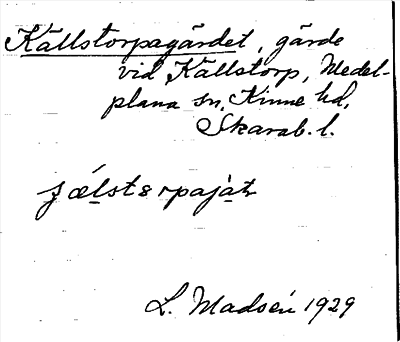 Källstorpagärdet, gärde
vid Källstorp, Medel-
plana sn, Kinne hd,
Skarab. l.
L. Madsén 1929